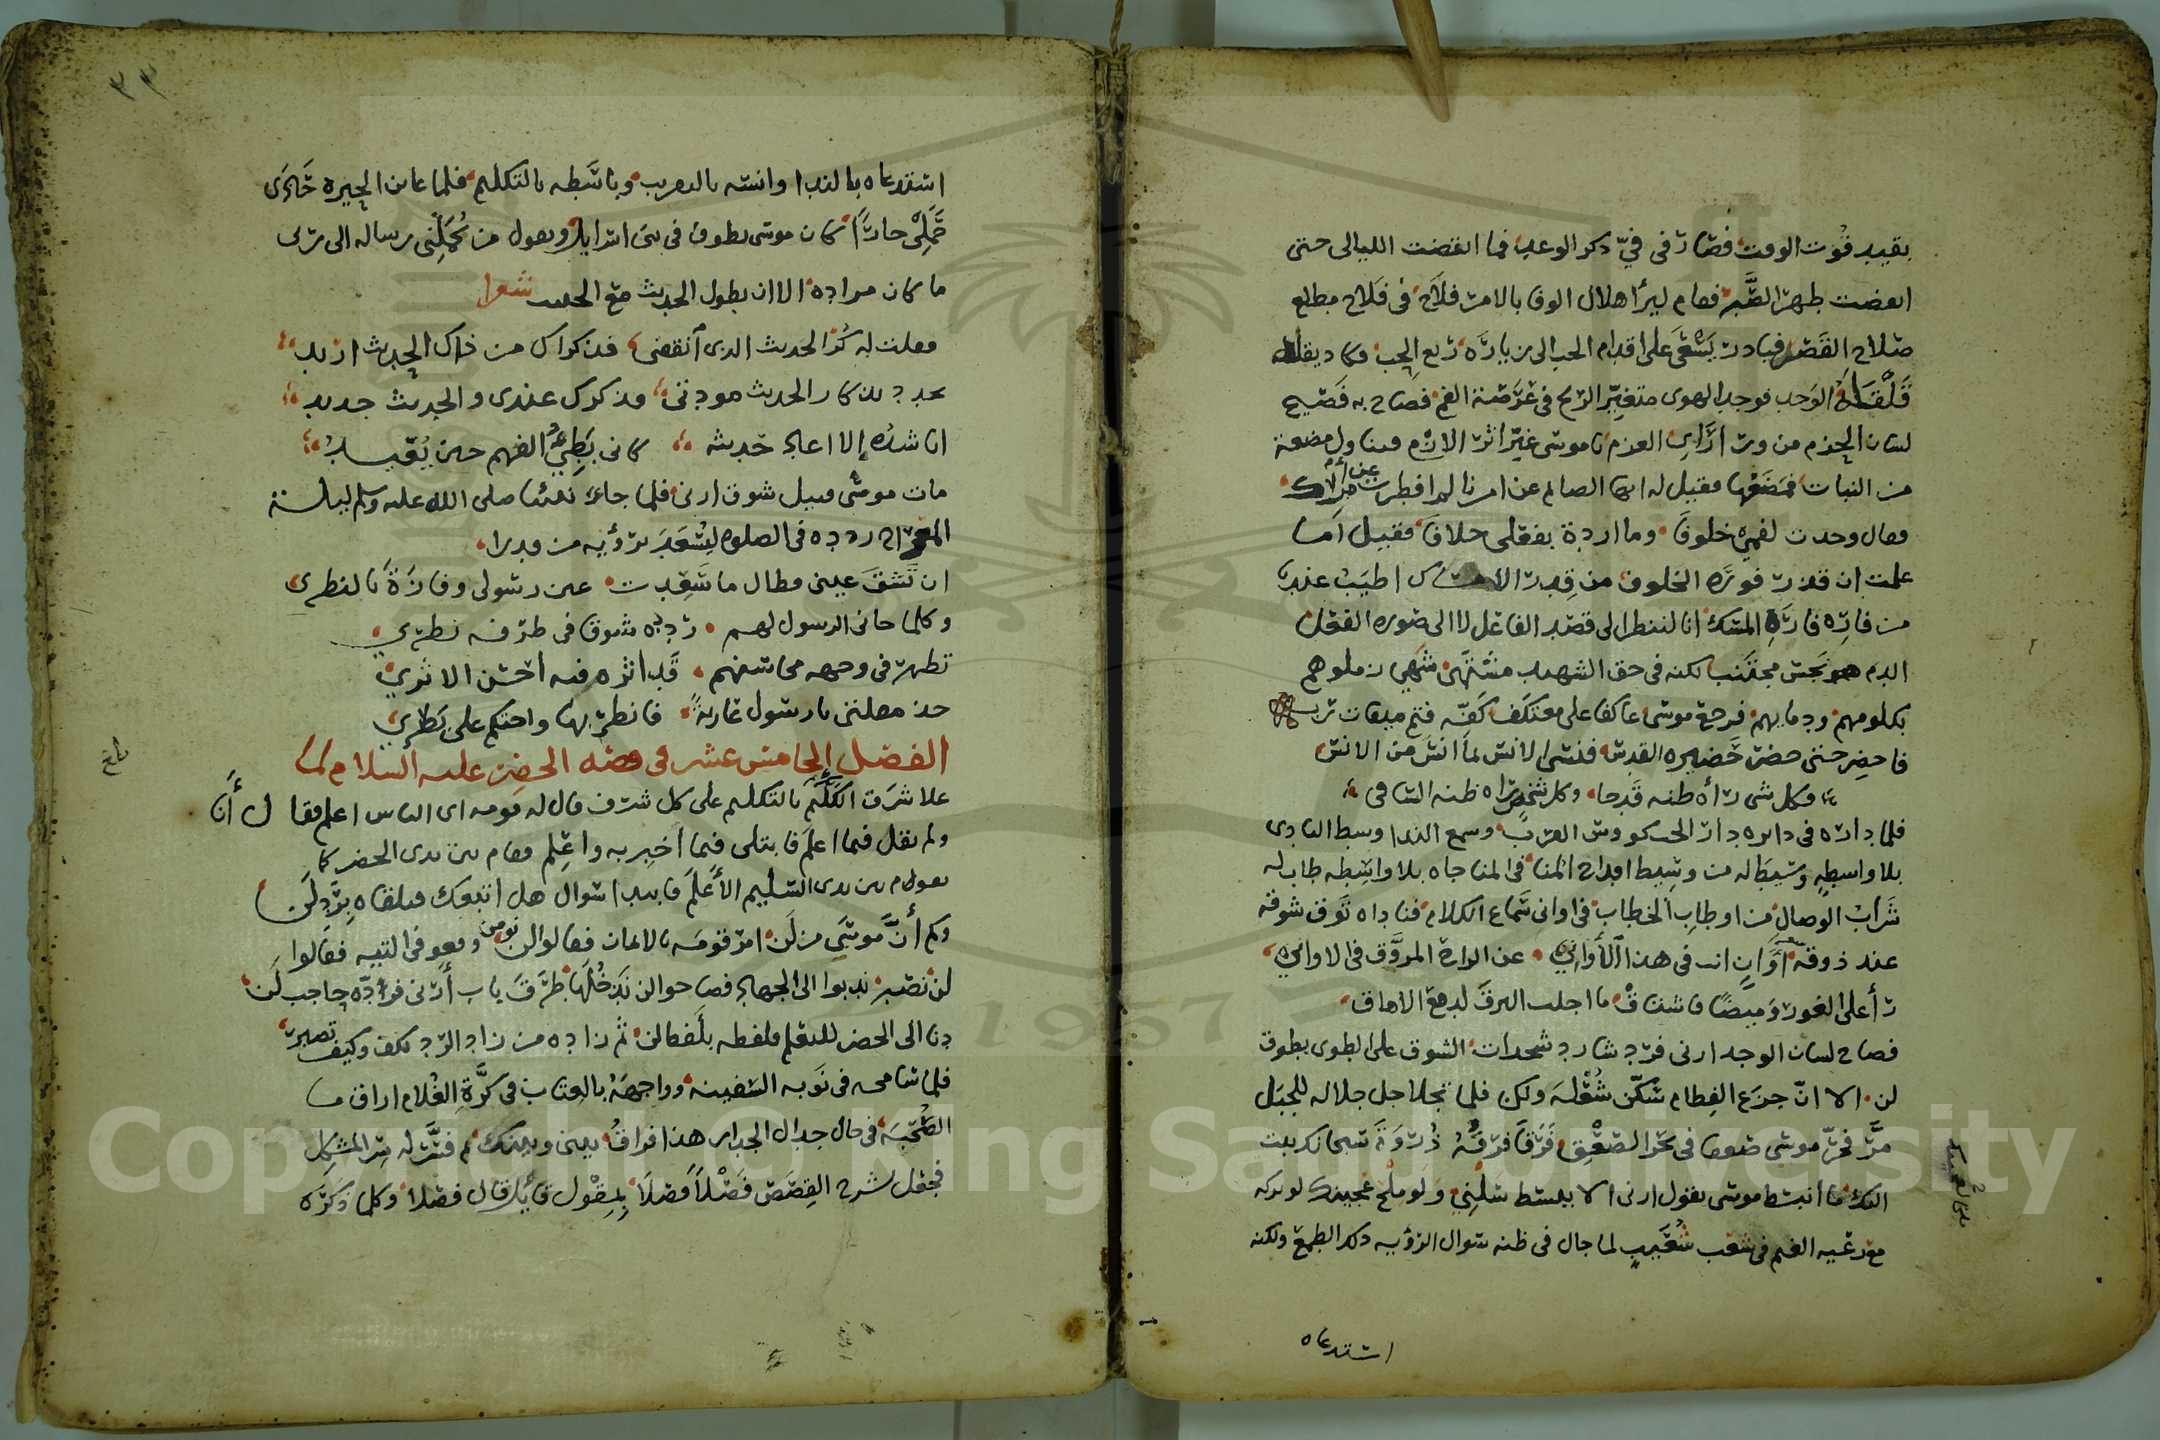 بقيد قُوت الوقت فصار في فيّ ذكر الوعد فما انقضت الليالي حتى
انقضت ظهر الصبر فقام ليرا هلال الوفا بالامر فلاح في فلاح مطلع
صلاح القصد فبادر يسعى على اقدام الحب الى زيارة ربع الحب وكاد يقلقله
قلقله الوجد فوجد الهوى متغير الريح في عرصة الفم فصاح به فصيح
لسان الحزم من ورا اراى العزم يا موسى غير اثر الازم فتناول مضغة
من النبات فمضغها فقيل له ايها الصائم عن امرنا لم افطرت عن رأيك
فقال وجدت لفمي خلوفا وما اردت بفعلي خلافا فقيل اما
علمت ان قدر فورة الخلوف من اطيب عندنا
من فارة فارة المسك انا لننظر الى قصد الفاعل لا الى صورة الفعل
الدم نجس مجتنب لكنه في حق الشهيد مشتهى شهي زملوهم
بكلومهم ودمايهم فرجع موسى عاكفا على معتكف كفه فتم ميقات ربه
فاحضر حتى حضر حضيرة القدس فنسى الانس لما انس من الانس
فكل شي رأه ظنه قدحا وكل شخص راه ظنه الساقي
فلما داره في دايرة دار الحب كووس القرب وسمع الندا وسط النادي
بلا واسطة وسيط له من وسيط اقداح المنا في المناجاه بلا واسطة طاب له
شراب الوصال من اوطاب الخطاب في اواني سماع الكلام فناداه توق شوقه
عند ذوقه اوان انت في هذا الأوان عن الراح المروق في الاواني
رأ على الغور وميضا فاشتاق ما اجلب البرق لدمع الاماق
فصاح لسان الوجد ارني فرد شارد شحذات الشوق على الطوى بطوق
لن الا ان جزع الفطام سكن شغله ولكن فلما تجلا جل جلاله للجبل
مر فخر موسى صعقا في بحر الصعق فرقا فرقه ذروة سبحانك تبت
اليك ما انبسط موسى بقول ارني الا ببسط سلني ولو ملح عجينك لو تركه
مع رعيه الغنم في شعب شعيب لما جال في ظنه سوال الرؤيه ذكر الطمع ولكنه
استدعاه
استدعاه بالندا وانسه بالتقريب وباسطه بالتكليم فلما عاين الحيرة حادى
جملي حارا كان موسى يطوف في بني اسراييل ويقول من يحملني رسالة الى ربي
ما كان مراده الا ان يطول الحديث مع الحبيب شعرا
فقلت له كرر الحديث الذي انقضى فذكراك من ذاك الحديث اريد
يجدد تذكار الحديث مودتي فذكرك عندي والحديث جديد
اناشده الا اعاد حديثه كاني بطيُّ الفهم حين يُعيد
مات موسى قتيل شوق ارني فلما جاء نبينا صلى الله عليه وسلم ليلة
المعراج ردده في الصلوة ليسعد برؤية من قد را
ان تشق عيني فطال ما سعدت عين رسولي وفازة بالنظري
وكلما جاني الرسول لهم رددت شوقا في طرفه نظري
تظهر في وجهه محاسنهم قد اثرة فيه احسن الاثري
خذ مقلتي يا رسول عارية فانظر بها واحتكم على بصري
الفصل الخامس عشر في قصة الخضر عليه السلام لما
علا شرف الكليم بالتكليم على كل شرف قال له قومه اي الناس اعلم فقال أنا
ولم يقل فيما اعلم فابتلى فيما اخبر به واعلم فقام بين يدي الخضر كما
يقوم بين يدي السليم الأعلم فابدا سوال هل اتبعك فتلقاه برد لن
وكم أن موسى من لن امر قومه بالايمان فقالوا لن نومن ووقعوا في التيه فقالوا
لن نصبر ندبوا الى الجهاد فصاحوا لن ندخلها طرق باب أرني فرده حاجب لن
دنا الى الخضر للتعلم فلفظه بلفظ لن ثم زاده من زاد الرد بكف وكيف تصبر
فلما سامحه في نوبة السفينة وواجهه بالعتاب في كرة الغلام اراق ما
الصحبة في حال جدال الجدار هذا فراق بيني وبينك ثم فسر له سر المشكل
فجعل شرح القصص فصلا فصلا بمقول قايل قال فصلا وكلما ذكره